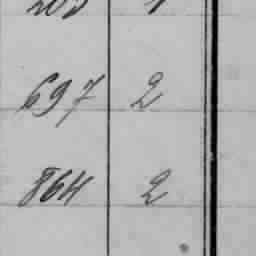 697 2
864 2